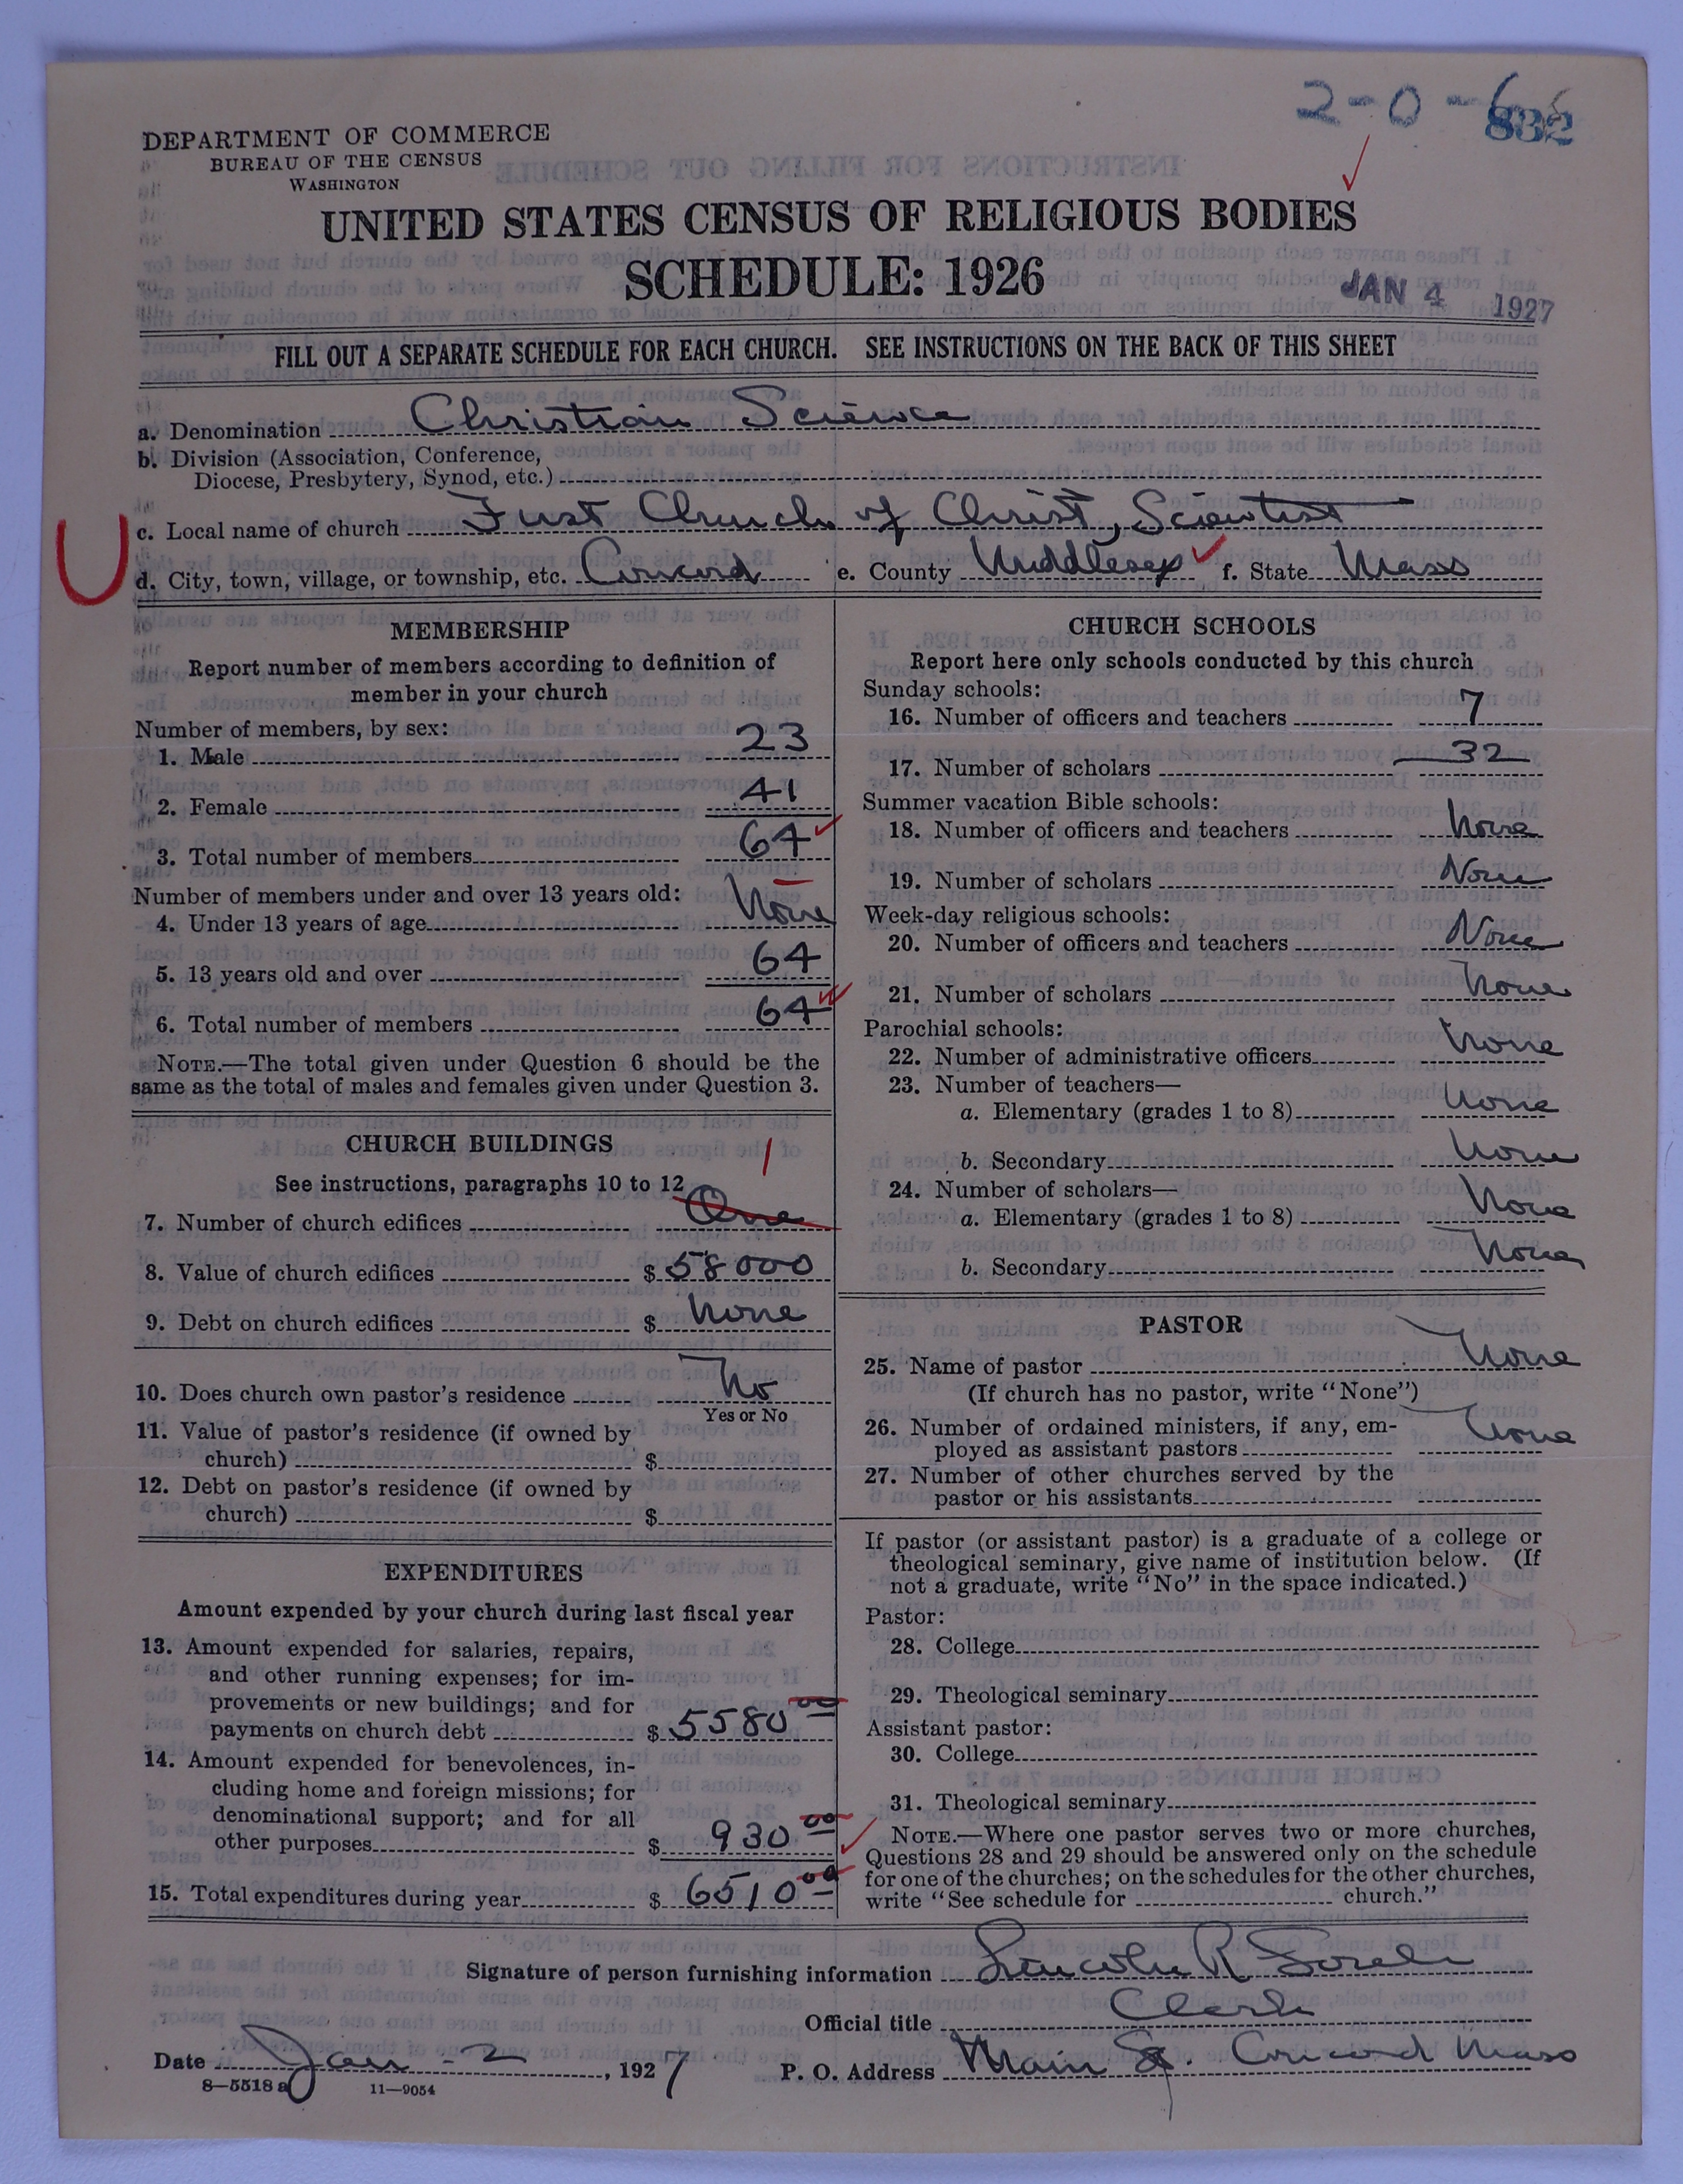 2-0-6
832
DEPARTMENT OF COMMERCE
BUREAU OF THE CENSUS
WASHINGTON
UNITED STATES CENSUS OF RELIGIOUS BODIES
SCHEDULE: 1926
JAN 4 1927
FILL OUT A SEPARATE SCHEDULE FOR EACH CHURCH. SEE INSTRUCTIONS ON THE BACK OF THIS SHEET
a. Denomination Christian Science
b. Division (Association, Conference,
Diocese, Presbytery, Synod, etc.)
c. Local name of church First Church of Christ, Scientist
d. City, town, village, or township, etc. Concord e. County Middlesex f. State Mass
MEMBERSHIP
Report number of members according to definition of
member in your church
Number of members, by sex:
1. Male 23
2. Female 41
3. Total number of members 64
Number of members under and over 13 years old:
4. Under 13 years of age None
5. 13 years old and over 64
6. Total number of members 64
NOTE.—The total given under Question 6 should be the
same as the total of males and females given under Question 3.
CHURCH BUILDINGS
See instructions, paragraphs 10 to 12
1
7. Number of church edifices One
8. Value of church edifices $ 58000
9. Debt on church edifices $ None
10. Does church own pastor's residence No
Yes or No
11. Value of pastor's residence (if owned by
church) $
12. Debt on pastor's residence (if owned by
church) $
EXPENDITURES
Amount expended by your church during last fiscal year
13. Amount expended for salaries, repairs,
and other running expenses; for im-
provements or new buildings; and for
payments on church debt $ 5580 00
14. Amount expended for benevolences, in-
cluding home and foreign missions; for
denominational support; and for all
other purposes $ 930 00
15. Total expenditures during year $ 6510 00
CHURCH SCHOOLS
Report here only schools conducted by this church
Sunday schools:
16. Number of officers and teachers 7
17. Number of scholars 32
Summer vacation Bible schools:
18. Number of officers and teachers None
19. Number of scholars None
Week-day religious schools:
20. Number of officers and teachers None
21. Number of scholars None
Parochial schools:
22. Number of administrative officers None
23. Number of teachers—
a. Elementary (grades 1 to 8) None
b. Secondary None
24. Number of scholars—
a. Elementary (grades 1 to 8) None
b. Secondary None
PASTOR
25. Name of pastor None
(If church has no pastor, write "None")
26. Number of ordained ministers, if any, em-
ployed as assistant pastors None
27. Number of other churches served by the
pastor or his assistants
If pastor (or assistant pastor) is a graduate of a college or
theological seminary, give name of institution below. (If
not a graduate, write "No" in the space indicated.)
Pastor:
28. College
29. Theological seminary
Assistant pastor:
30. College
31. Theological seminary
NOTE.—Where one pastor serves two or more churches,
Questions 28 and 29 should be answered only on the schedule
for one of the churches; on the schedules for the other churches,
write "See schedule for church."
Signature of person furnishing information Lincoln R
Official title Clerk
Date Jan - 2, 1927 P. O. Address Main St. Concord Mass
8—5518 a 11—9054